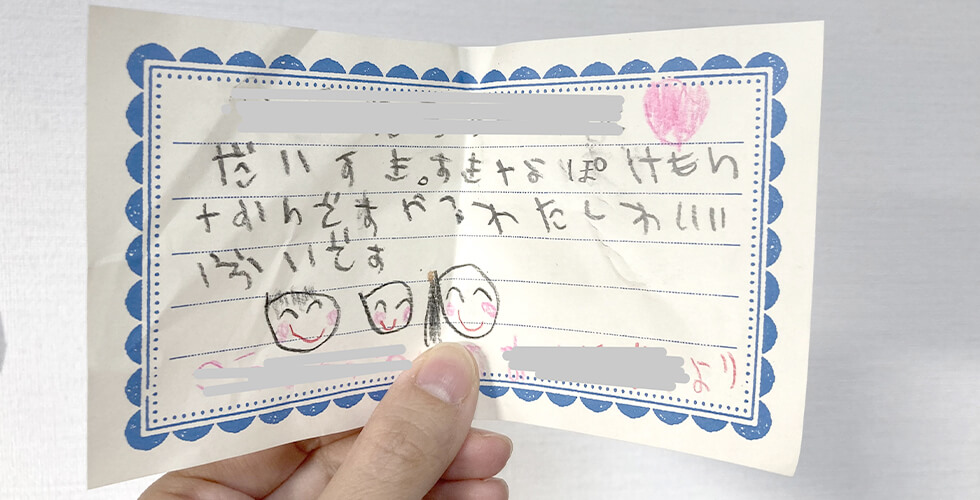 だいすき。すきなぽけもん
なんですか？わたしわいい
ぶいです
より